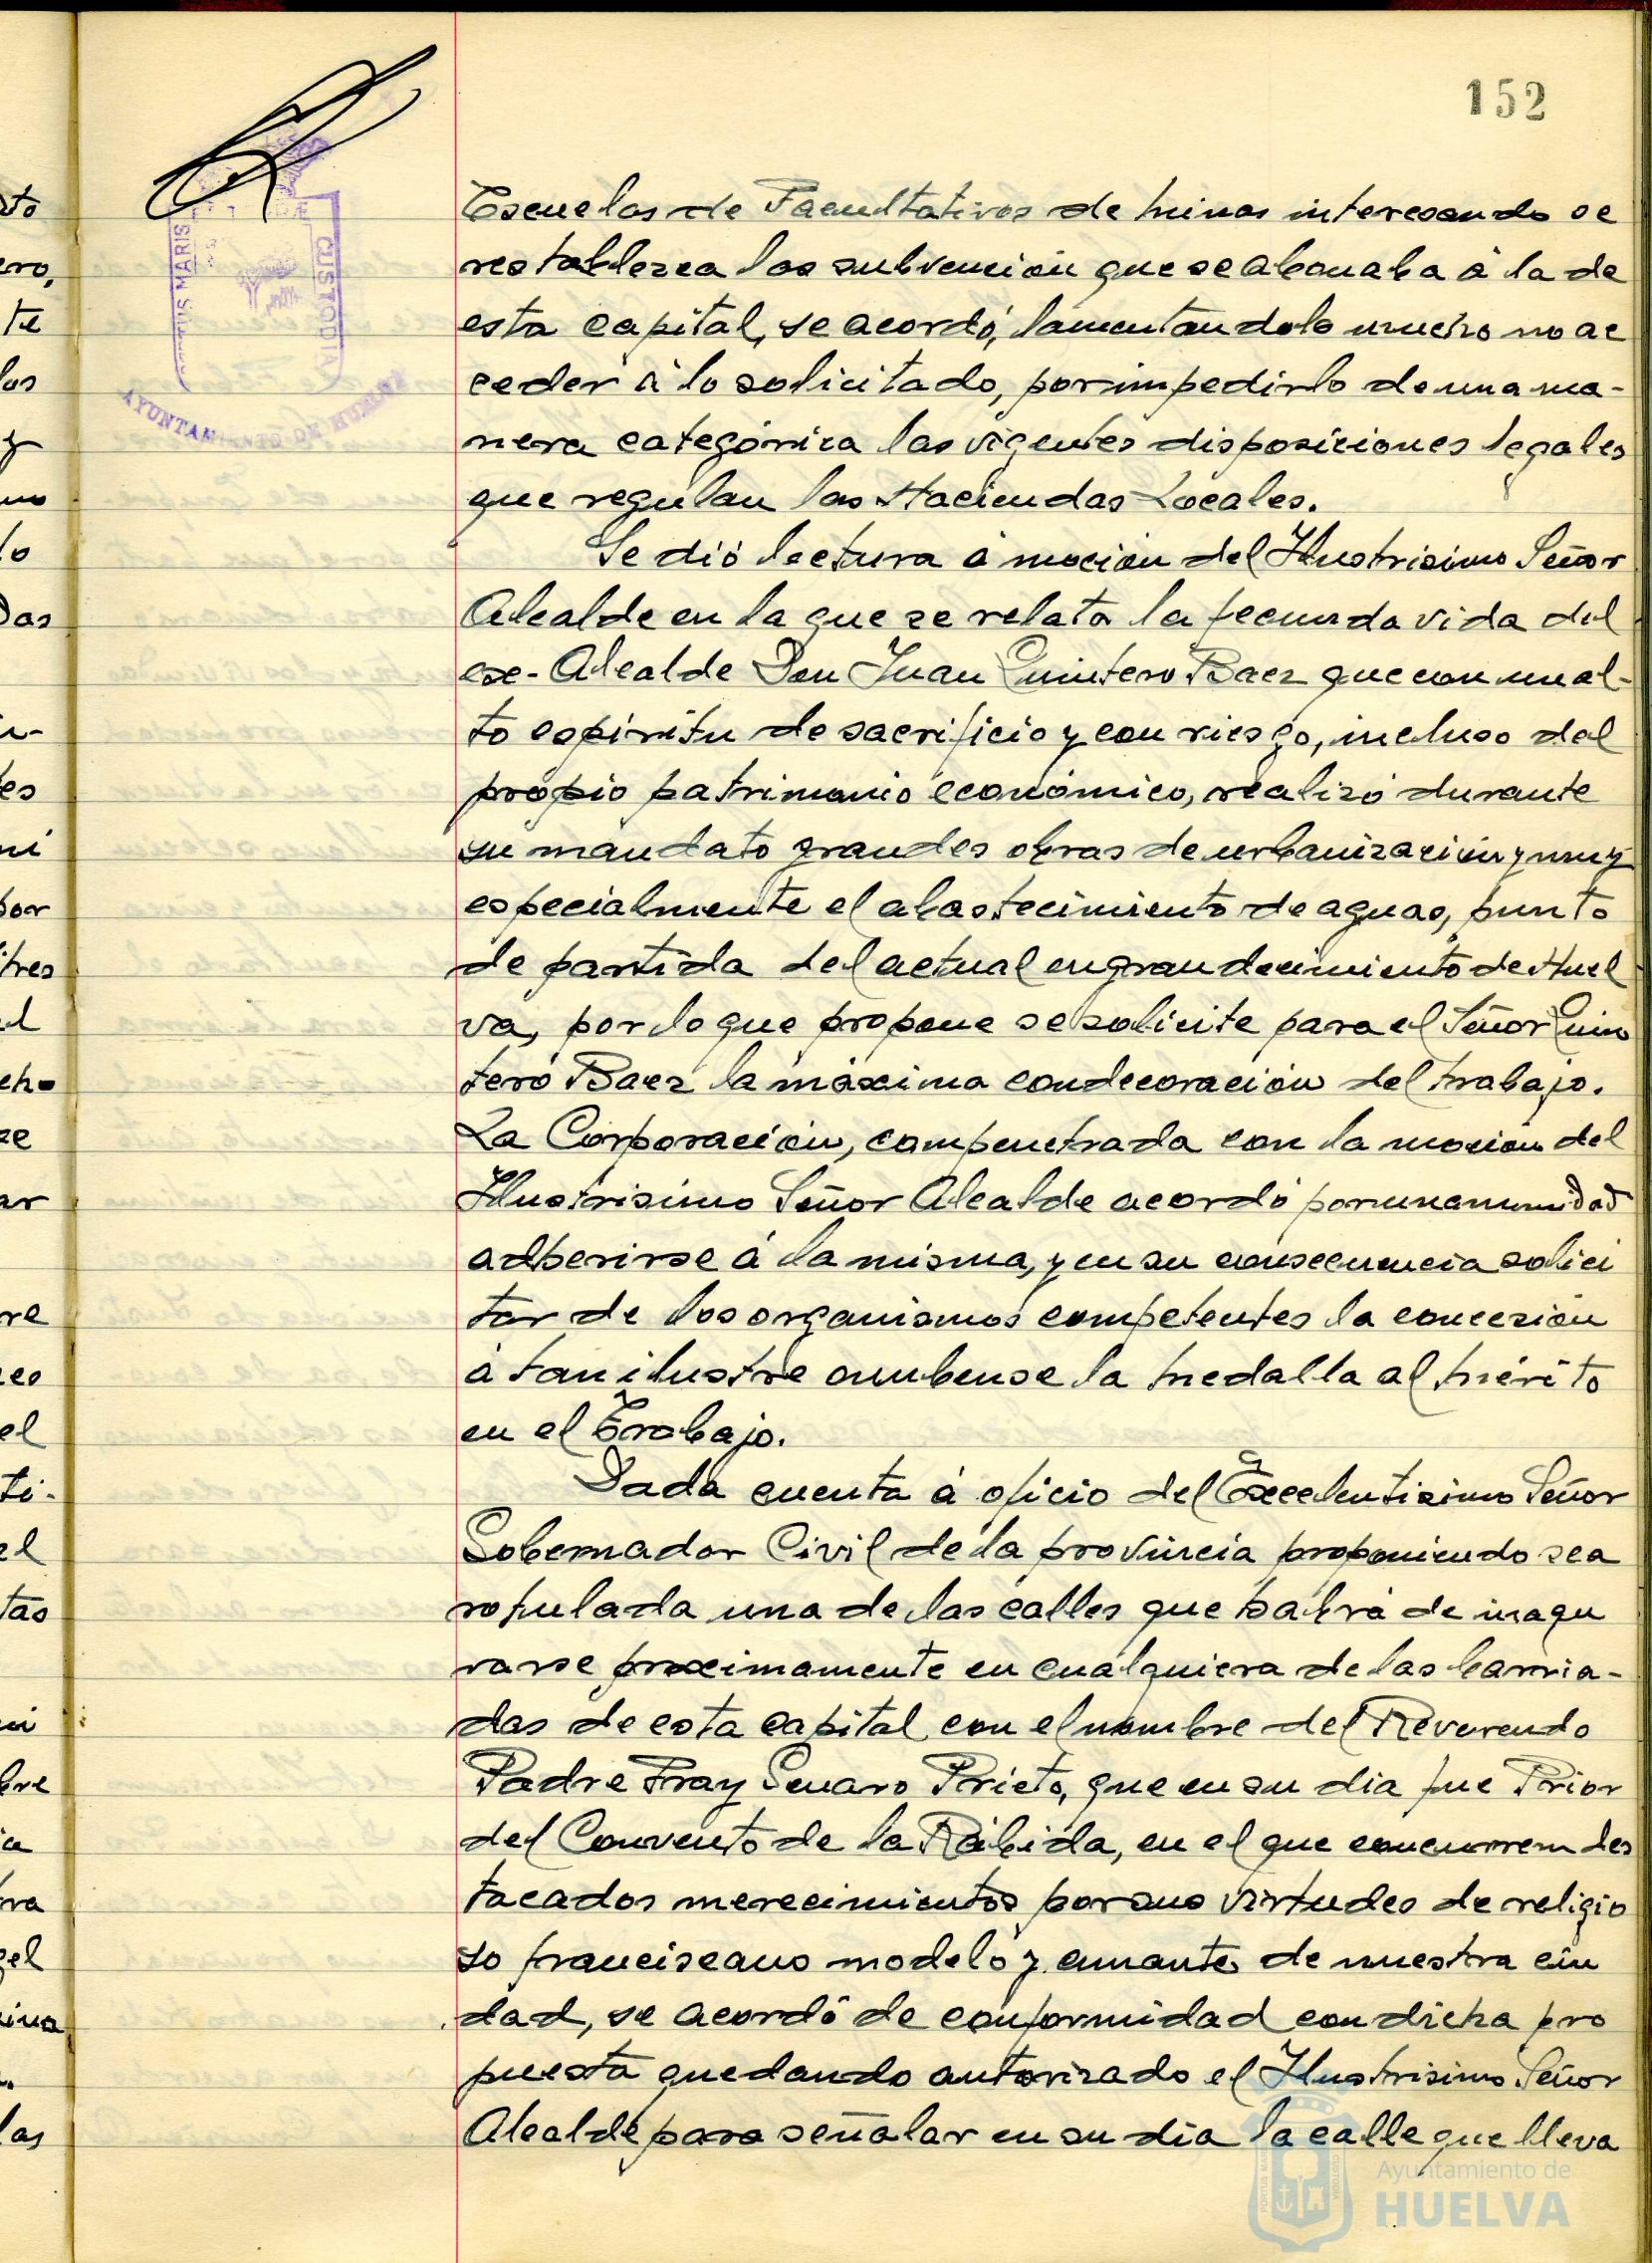 152
Escuelas de Facultativos de Minas interesando se
restablezca las subvención que se abonaba á la de
esta capital, se acordó, lamentandolo mucho no ac
ceder á lo solicitado, por impedirlo de una ma-
nera categórica las vigentes disposiciones legales
que regulan las Haciendas Locales.
Se dió lectura á moción del Ilustrisimo Señor
Alcalde en la que se relata la fecunda vida del
ex-Alcalde Don Juan Quintero Baez que con un al-
to espiritu de sacrificio y con riesgo, incluso del
propio patrimonio económico, realizó durante
su mandato grandes obras de urbanización y muy
especialmente el abastecimiento de aguas, punto
de partida del actual engrandecimiento de Huel
va, por lo que propone se solicite para el Señor Quin
tero Baez la máxima condecoración del trabajo.
La Corporación, compenetrada con la moción del
Ilustrisimo Señor Alcalde acordó por unanimidad
adherirse á la misma, y en su consecuencia solici
tar de los organismos competentes la concesión
á tan ilustre onubense la Medalla al Mérito
en el Trabajo.
Dada cuenta á oficio del Excelentisimo Señor
Gobernador Civil de la provincia proponiendo sea
rotulada una de las calles que habrá de inagu
rarse proximamente en cualquiera de las barria-
das de esta capital con el nombre del Reverendo
Padre Fray Genaro Prieto, que en su dia fue Prior
del Convento de la Rábida, en el que concurren des
tacados merecimientos por sus virtudes de religio
so franciscano modelo y amante de nuestra ciu
dad, se acordó de conformidad con dicha pro
puesta quedando autorizado el Ilustrisimo Señor
Alcalde para señalar en su dia la calle que lleva
MARIS
CUSTODIA
AYUNTAMIENTO DE HUELVA
Ayuntamiento de
HUELVA